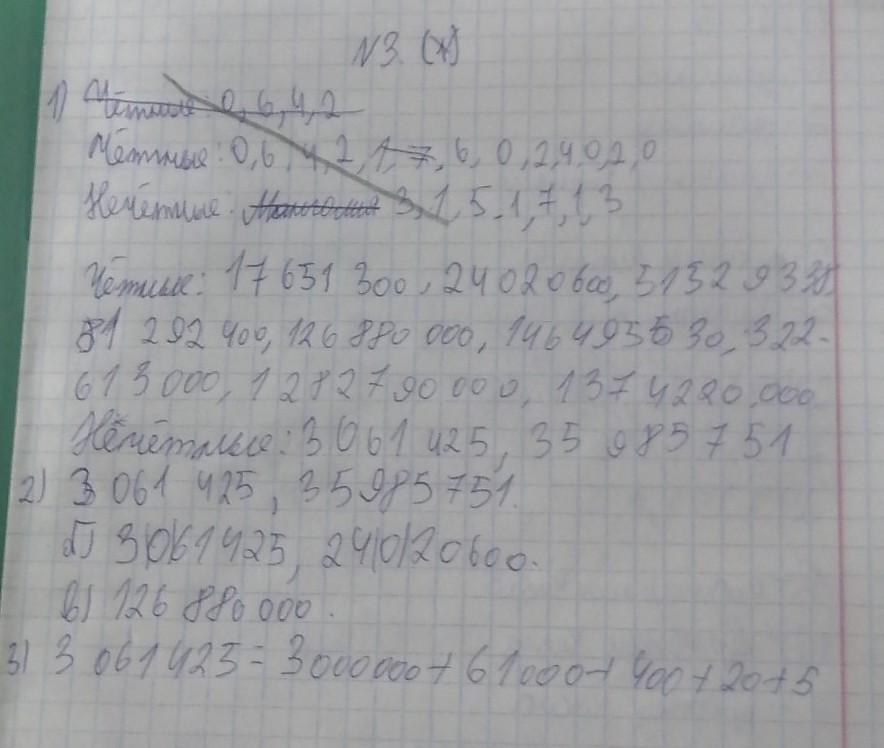 №3. (н)
1) Чётные: 0, 6, 4, 2
Чётные: 0, 6, 4, 2, 1, 7, 6, 0, 2, 4, 0, 2, 0
Нечётные: 3, 1, 5, 1, 7, 1, 3
Чётные: 17 651 300, 24 020 600, 51 529 338,
81 292 400, 126 880 000, 146 495 530, 322-
613 000, 1 282 790 000, 1 374 220 000
Нечётные: 3 061 425, 35 985 751
2) 3 061 425, 35 985 751.
б) 3|0|61 425, 24|0|20600.
в) 126 880 000.
3) 3 061 425 = 3000000 + 61000 + 400 + 20 + 5